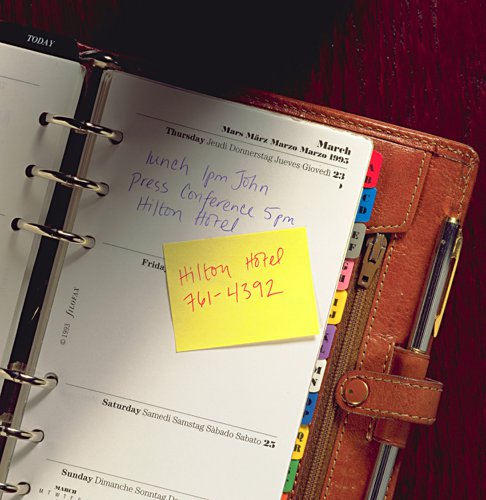 TODAY
March
Mars März Marzo Marzo 1995
Thursday Jeudi Donnerstag Jueves Giovedì 23
lunch 1pm John
Press Conference 5pm
Hilton Hotel
Hilton Hotel
761-4392
© 1993 FILOFAX
Saturday Samedi Samstag Sàbado Sabato 25
Sunday Dimanche Sonntag
MARCH
A
B
C
D
E
F
G
M
N
Q
R